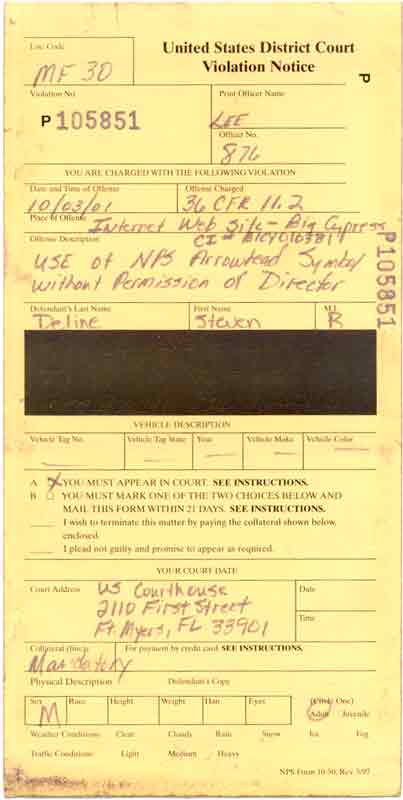 Loc. Code
MF 30
United States District Court
Violation Notice
P
Violation No.
P105851
Print Officer Name
LEE
Officer No.
876
YOU ARE CHARGED WITH THE FOLLOWING VIOLATION
Date and Time of Offense
10/03/01
Offense Charged
36 CFR 11.2
Place of Offense
Internet Web Site - Big Cypress
Offense Description
USE of NPS Arrowhead Symbol
without Permission of Director
P105851
Defendant's Last Name
Deline
First Name
Steven
M.I.
R
VEHICLE DESCRIPTION
Vehicle Tag No. Vehicle Tag State Year Vehicle Make Vehicle Color
A X YOU MUST APPEAR IN COURT. SEE INSTRUCTIONS.
B □ YOU MUST MARK ONE OF THE TWO CHOICES BELOW AND
MAIL THIS FORM WITHIN 21 DAYS. SEE INSTRUCTIONS.
I wish to terminate this matter by paying the collateral shown below,
enclosed.
I plead not guilty and promise to appear as required.
YOUR COURT DATE
Court Address
US Courthouse
2110 First Street
Ft. Myers, FL 33901
Date
Time
Collateral (fine)
Mandatory
For payment by credit card SEE INSTRUCTIONS.
Physical Description Defendant's Copy
Sex
M
Race Height Weight Hair Eyes
(Circle One)
Adult Juvenile
Weather Conditions: Clear Cloudy Rain Snow Ice Fog
Traffic Conditions: Light Medium Heavy
NPS Form 10-50, Rev. 3/97